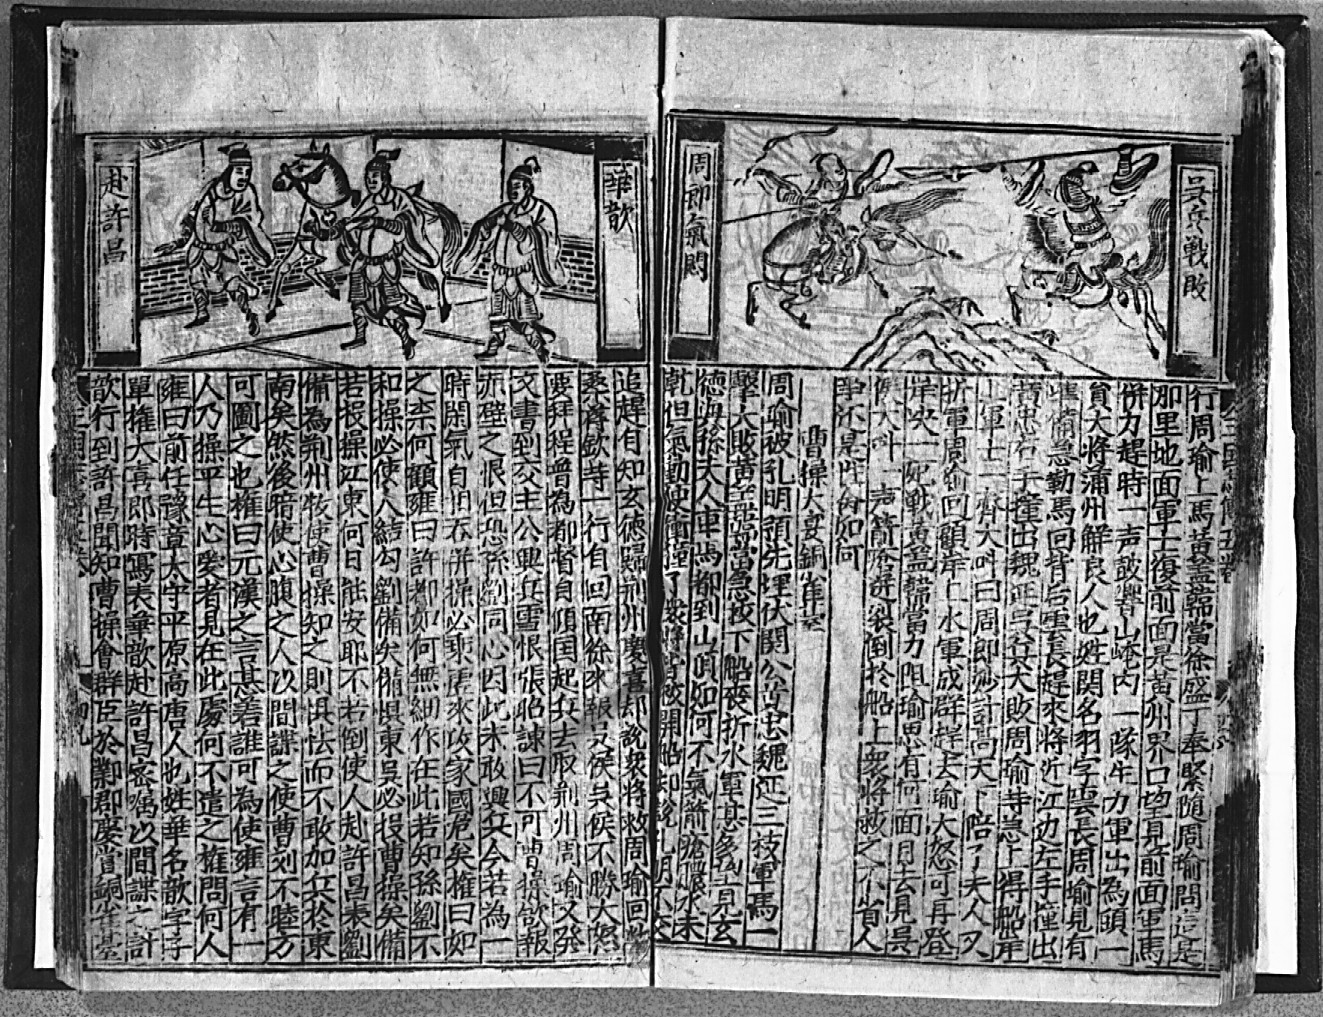 吳兵戰敗
周郎氣悶
行周瑜上馬黃蓋韓當徐盛丁奉緊隨周瑜問這是
那里地面軍士復前面是黃州界口望見前面軍馬
併力趕時一声鼓響山崦內一隊生力軍出為頭一
員大將蒲州解良人也姓関名羽字雲長周瑜見有
準備急勒馬回背后雲長趕來將近江边左手撞出
黃忠右手撞出魏延吳兵大敗周瑜等急上得船岸
上軍士一齊大叫曰周郎妙計高天下陪了夫人又
折軍周瑜回顧岸上水軍成群捍去瑜大怒可再登
岸决一死戰黃蓋韓當力阻瑜思有何面目去見吳
侯大叫一声箭瘡迸裂倒於船上衆將救之不省人
事还是性命如何
曹操大宴銅雀臺
周瑜被孔明預先埋伏関公黃忠魏延三枝軍馬一
擊大敗黃蓋韓當急救下船喪折水軍甚多望見玄
德與孫夫人車馬都到山頂如何不氣箭瘡膿水未
乾但氣動便衝撞了衆將皆救開船却說孔明不交
華歆
赴許昌
追趕自知玄德歸荆州慶喜却說衆將救周瑜回
桑蔣欽等一行自回南徐來報吳侯吳侯不勝大怒
要拜程普為都督自傾囯起兵去取荆州周瑜又發
文書到交主公興兵雪恨張昭諫曰不可曹操欲報
赤壁之恨但恐孫劉同心因此未敢興兵今若為一
時閑氣自相吞併操必乘虛來攻家國危矣權曰如
之柰何顧雍曰許都如何無細作在此若知孫劉不
和操必使人結勾劉備矣備惧東吳必投曹操矣備
若投操江東何日能安耶不若倒使人赴許昌表劉
備為荆州牧使曹操知之則惧怯而不敢加兵於東
南矣然後暗使心腹之人以間諜之使曹刘不睦方
可圖之也權曰元漢之言甚善誰可為使雍言有一
人乃操平生心愛者見在此處何不遣之權問何人
雍曰前任豫章太守平原高唐人也姓華名歆字子
單權大喜即時寫表華歆赴許昌密嘱以間諜之計
歆行到許昌聞知曹操會群臣於鄴郡慶賞銅雀臺